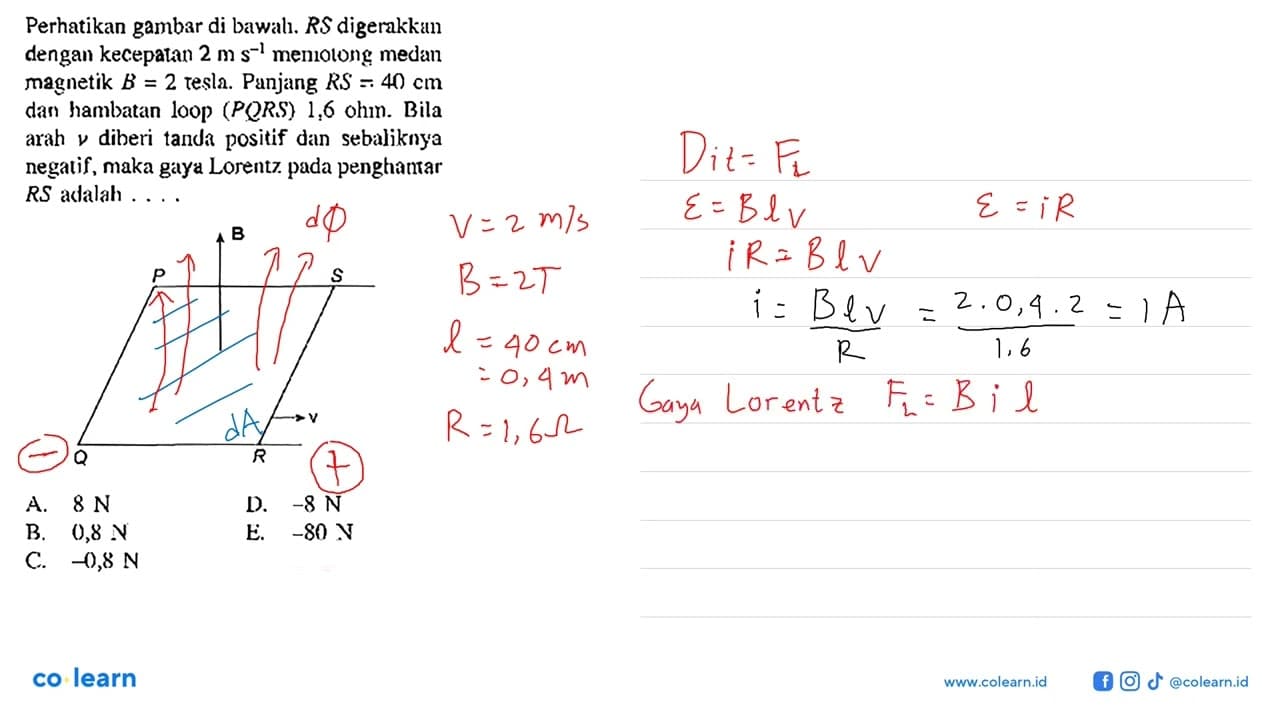 Perhatikan gambar di bawah. RS digerakkan
dengan kecepatan 2 m s⁻¹ memotong medan
magnetik B = 2 tesla. Panjang RS = 40 cm
dan hambatan loop (PQRS) 1,6 ohm. Bila
arah v diberi tanda positif dan sebaliknya
negatif, maka gaya Lorentz pada penghantar
RS adalah . . . .
B
dϕ
P
S
dA
v
−
Q
R
+
A. 8 N
D. −8 N
B. 0,8 N
E. −80 N
C. −0,8 N
V = 2 m/s
B = 2T
l = 40 cm
= 0,4 m
R = 1,6 Ω
Dit = F_L
ε = B l v
ε = i R
i R = B l v
i = B l v / R = 2 . 0,4 . 2 / 1,6 = 1 A
Gaya Lorentz F_L = B i l
co learn
www.colearn.id
@colearn.id